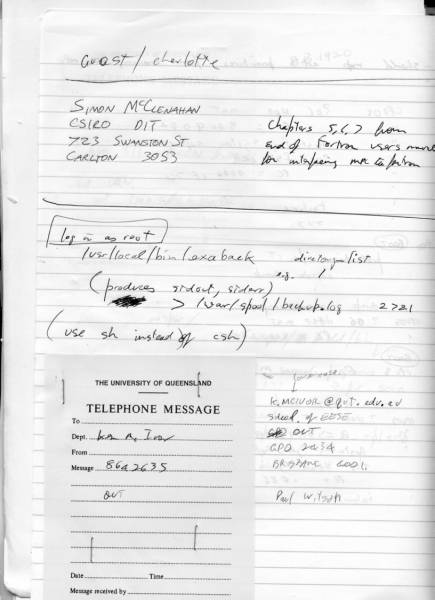 Guest / charlotte
SIMON McCLENAHAN
CSIRO DIT
723 SWANSTON ST
CARLTON 3053
Chapters 5, 6, 7 from
end of Fortran users manual
for interfacing
log in as root
/usr/local/bin/exaback directory list
e.g. /
(produces stdout, stderr)
> /var/spool/backup.log 2>&1
(use sh instead of csh)
THE UNIVERSITY OF QUEENSLAND
TELEPHONE MESSAGE
To
Dept.
From
Message 864 2635
QUT
Date Time
Message received by
K.MCIVOR@qut.edu.au
School of EESE
QUT
GPO 2434
BRISBANE 4001.
Paul